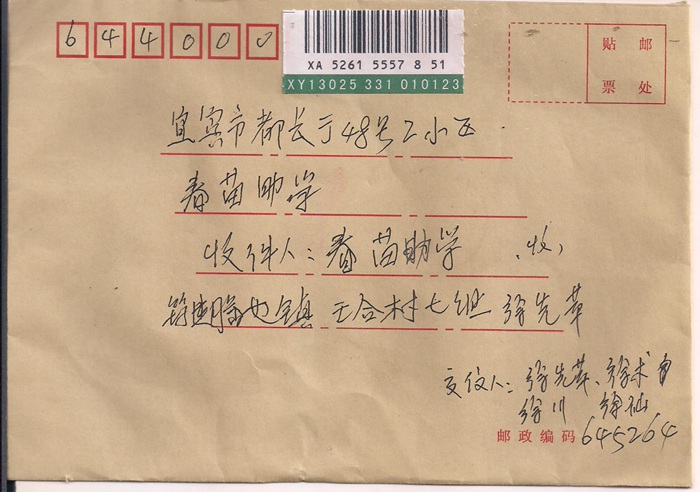 644000
XA 5261 5557 8 51
XY13025 331 010123
贴 邮
票 处
宜宾市都长于48号2小区
春苗助学
收件人：春苗助学 收
腾也镇 王合村七组 徐先革
交仪人：徐先革、徐术
徐川 徐仙
邮政编码 645264